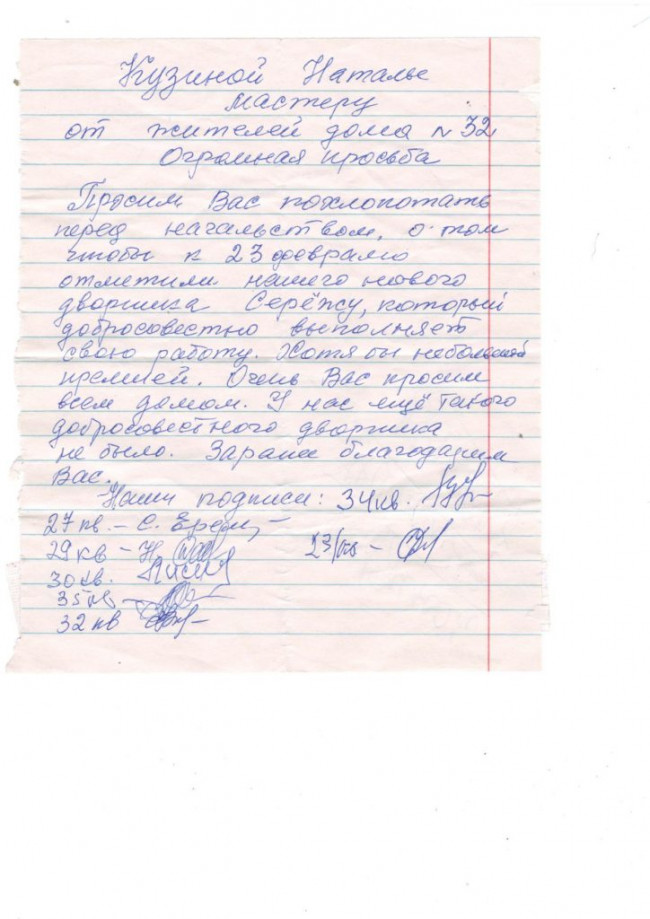 Кузиной Наталье
мастеру
от жителей дома N 32
Огромная просьба
Просим Вас похлопотать
перед начальством, о том
чтобы к 23 февралю
отметили нашего нового
дворника Серёжу, который
добросовестно выполняет
свою работу. Хотя бы небольшой
премией. Очень Вас просим
всем домом. У нас ещё такого
добросовестного дворника
не было. Заранее благодарим
Вас.
Наши подписи: 34 кв.
27 кв. – С.
29 кв – Н. 23/кв –
30 кв.
35 кв –
32 кв